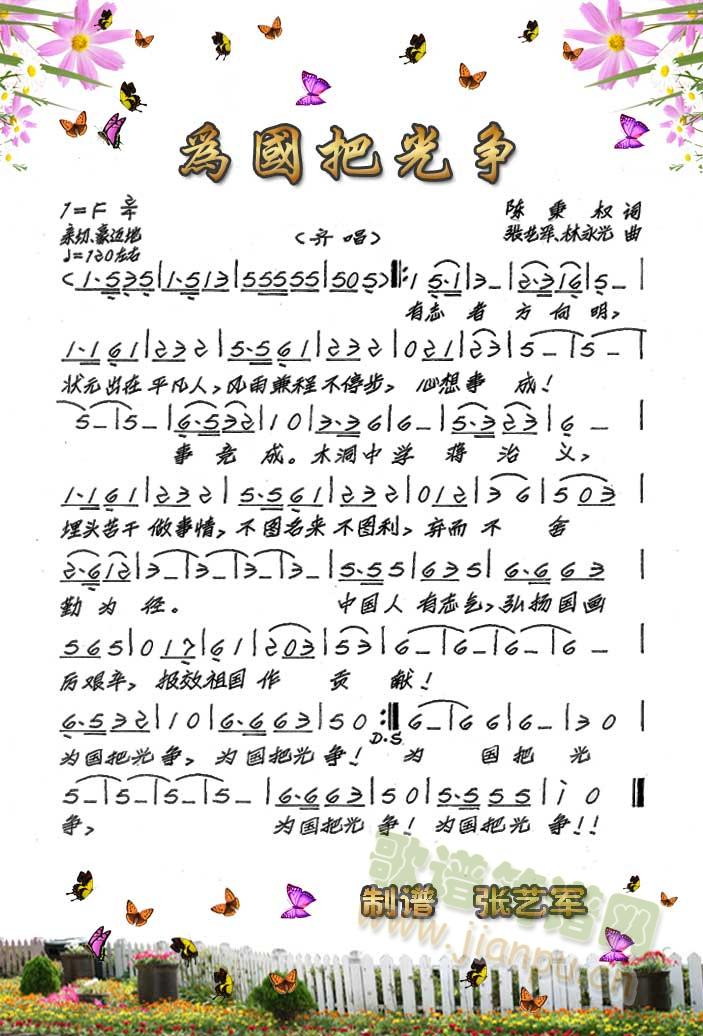 為國把光争
1=F 2/4
陈秉权 词
亲切、豪迈地
(齐唱)
张艺军、林永光 曲
♩=120左右
(1·535|1·513|55555|505)‖:1 5·1|3–|2·316|5–|
有志者方向明,
1·161|232|5·561|232|021|232|5–|5–|
状元出在平凡人,风雨兼程不停步,心想事成!
5–|5–|6·532|10|3·36|6–|5·323|6–|
事竞成。木洞中学蒋治义,
1·161|232|5·561|232|012|36|503|
埋头苦干做事情,不图名来不图利,弃而不舍
2·612|3–|3–|3–|3–|5·55|635|6·663|
勤为径。中国人有志气,弘扬国画
565|017|61|203|53|6–|6–|6–|6–|
历艰辛,报效祖国作贡献!
6·532|10|6·663|50:‖6–|66|6–|30|
D.S
为国把光争,为国把光争!为国把光
5–|5–|5–|5–|6·663|50|5·555|i0‖
争,为国把光争!为国把光争!!
制谱 张艺军
歌谱简谱网
www.jianpu.cn